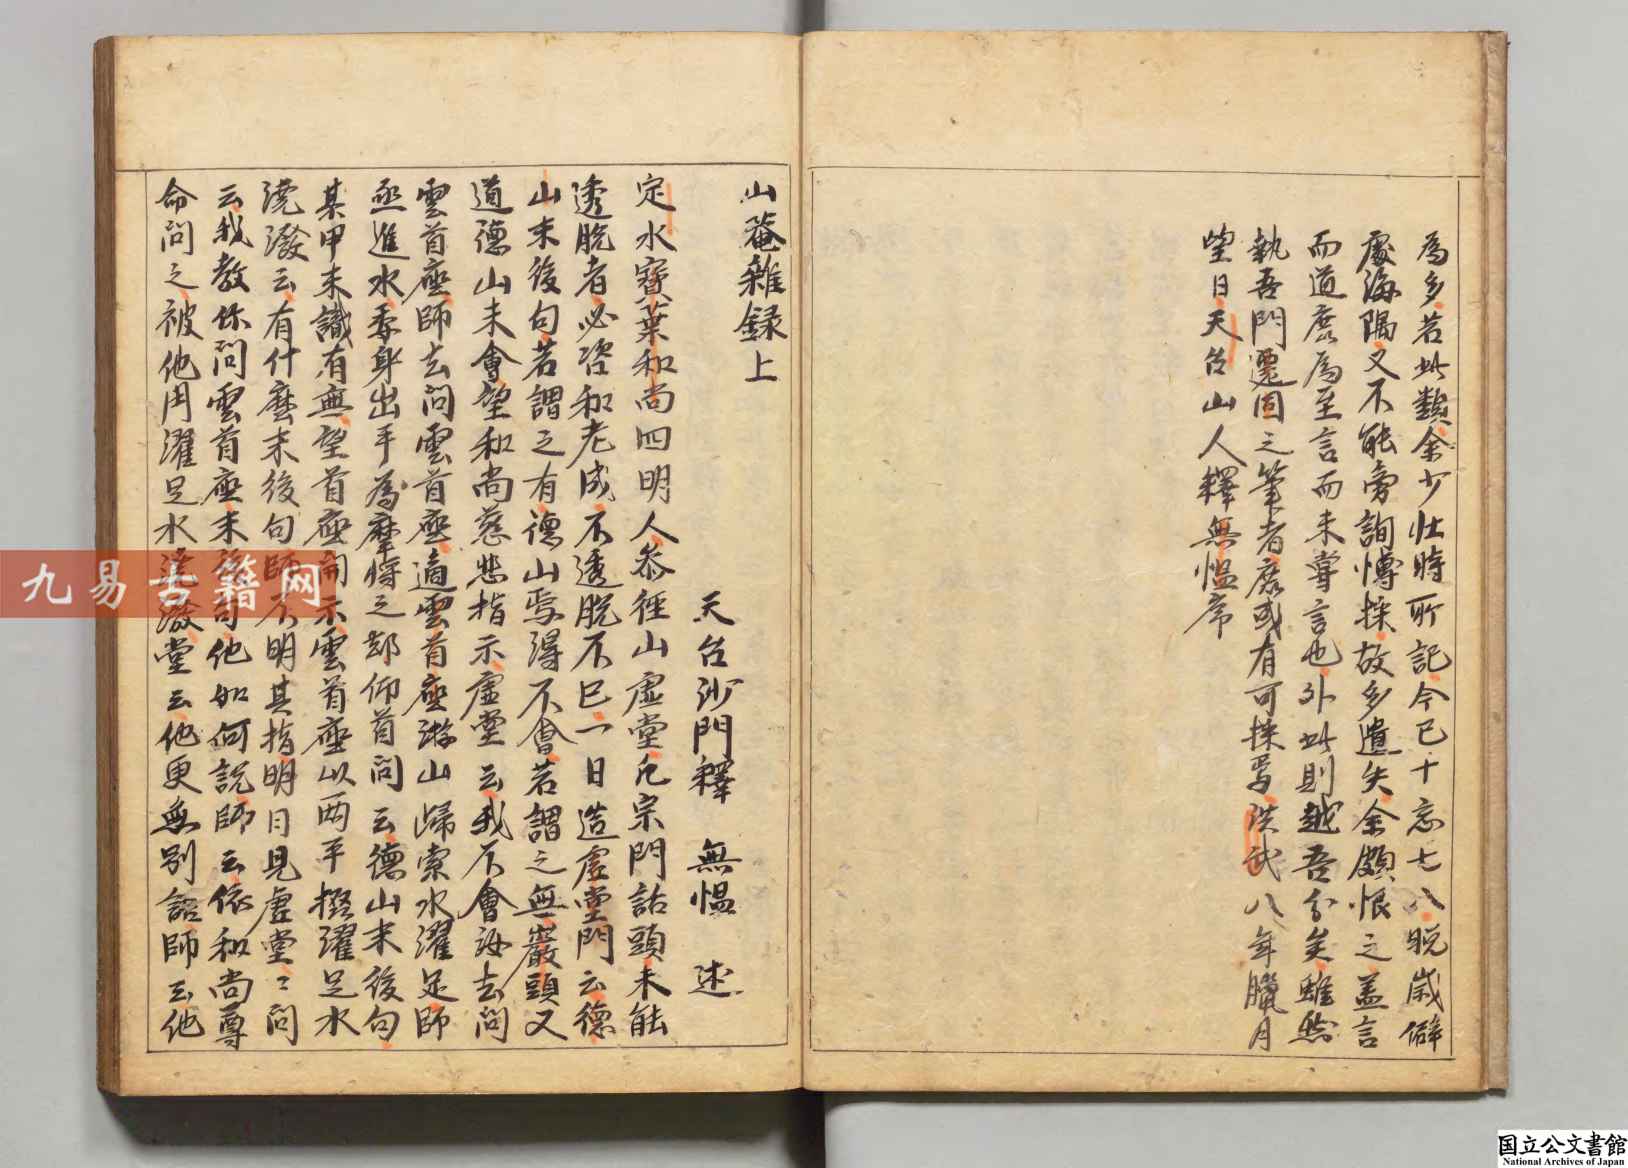 為多若此類余少壯時所記今已十忘七八晚歲僻
處海隅又不能旁詢博採故多遺失余頗恨之蓋言
而道庶為至言而未嘗言也外此則越吾分矣雖然
執吾門遷固之筆者庶或有可採焉洪武八年臘月
望日天台山人釋無慍序
山菴雜録上
天台沙門釋 無慍 述
定水寶葉和尚四明人参徑山虛堂凡宗門詁頭未能
透脫者必咨和老成不透脫不已一日造虛堂門云德
山末後句若謂之有德山焉得不會若謂之無巖頭又
道德山未會望和尚慈悲指示虛堂云我不會汝去問
雲首座師去問雲首座適雲首座游山歸索水濯足師
亟進水委身出手為摩捋之卻仰首問云德山末後句
某甲未識有無望首座開示雲首座以兩手掇濯足水
澆潑云有什麼末後句師不明其指明日見虛堂〻問
云我教你問雲首座末後句他如何說師云依和尚尊
命問之被他用濯足水澆潑堂云他更無別語師云他
九易古籍网
国立公文書館
National Archives of Japan